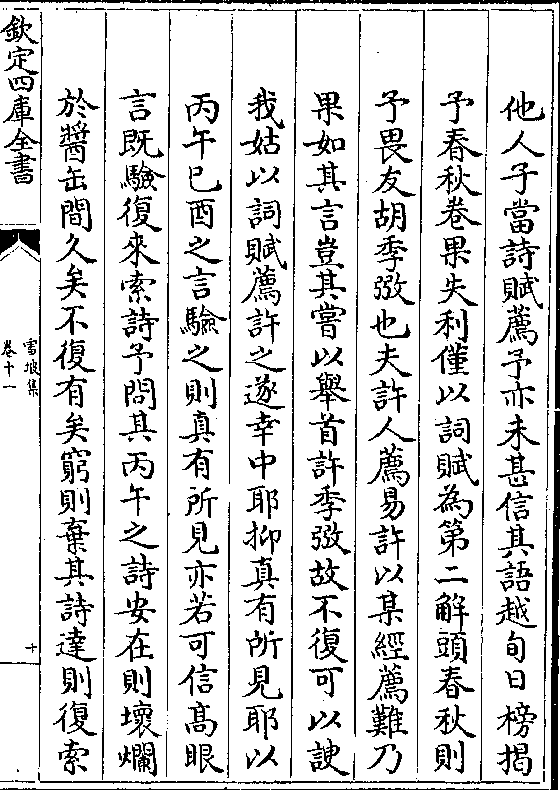 他人子當詩賦薦予亦未甚信其語越旬日榜揭
予春秋卷果失利僅以詞賦為第二解頭春秋則
予畏友胡季弢也夫許人薦易許以某經薦難乃
果如其言豈其嘗以舉首許季弢故不復可以諛
我姑以詞賦薦許之遂幸中耶抑真有所見耶以
丙午巳酉之言驗之則真有所見亦若可信髙眼
言既驗復來索詩予問其丙午之詩安在則壞爛
於醬缶間久矣不復有矣窮則棄其詩達則復索
欽定四庫全書
雪坡集
卷十一
十